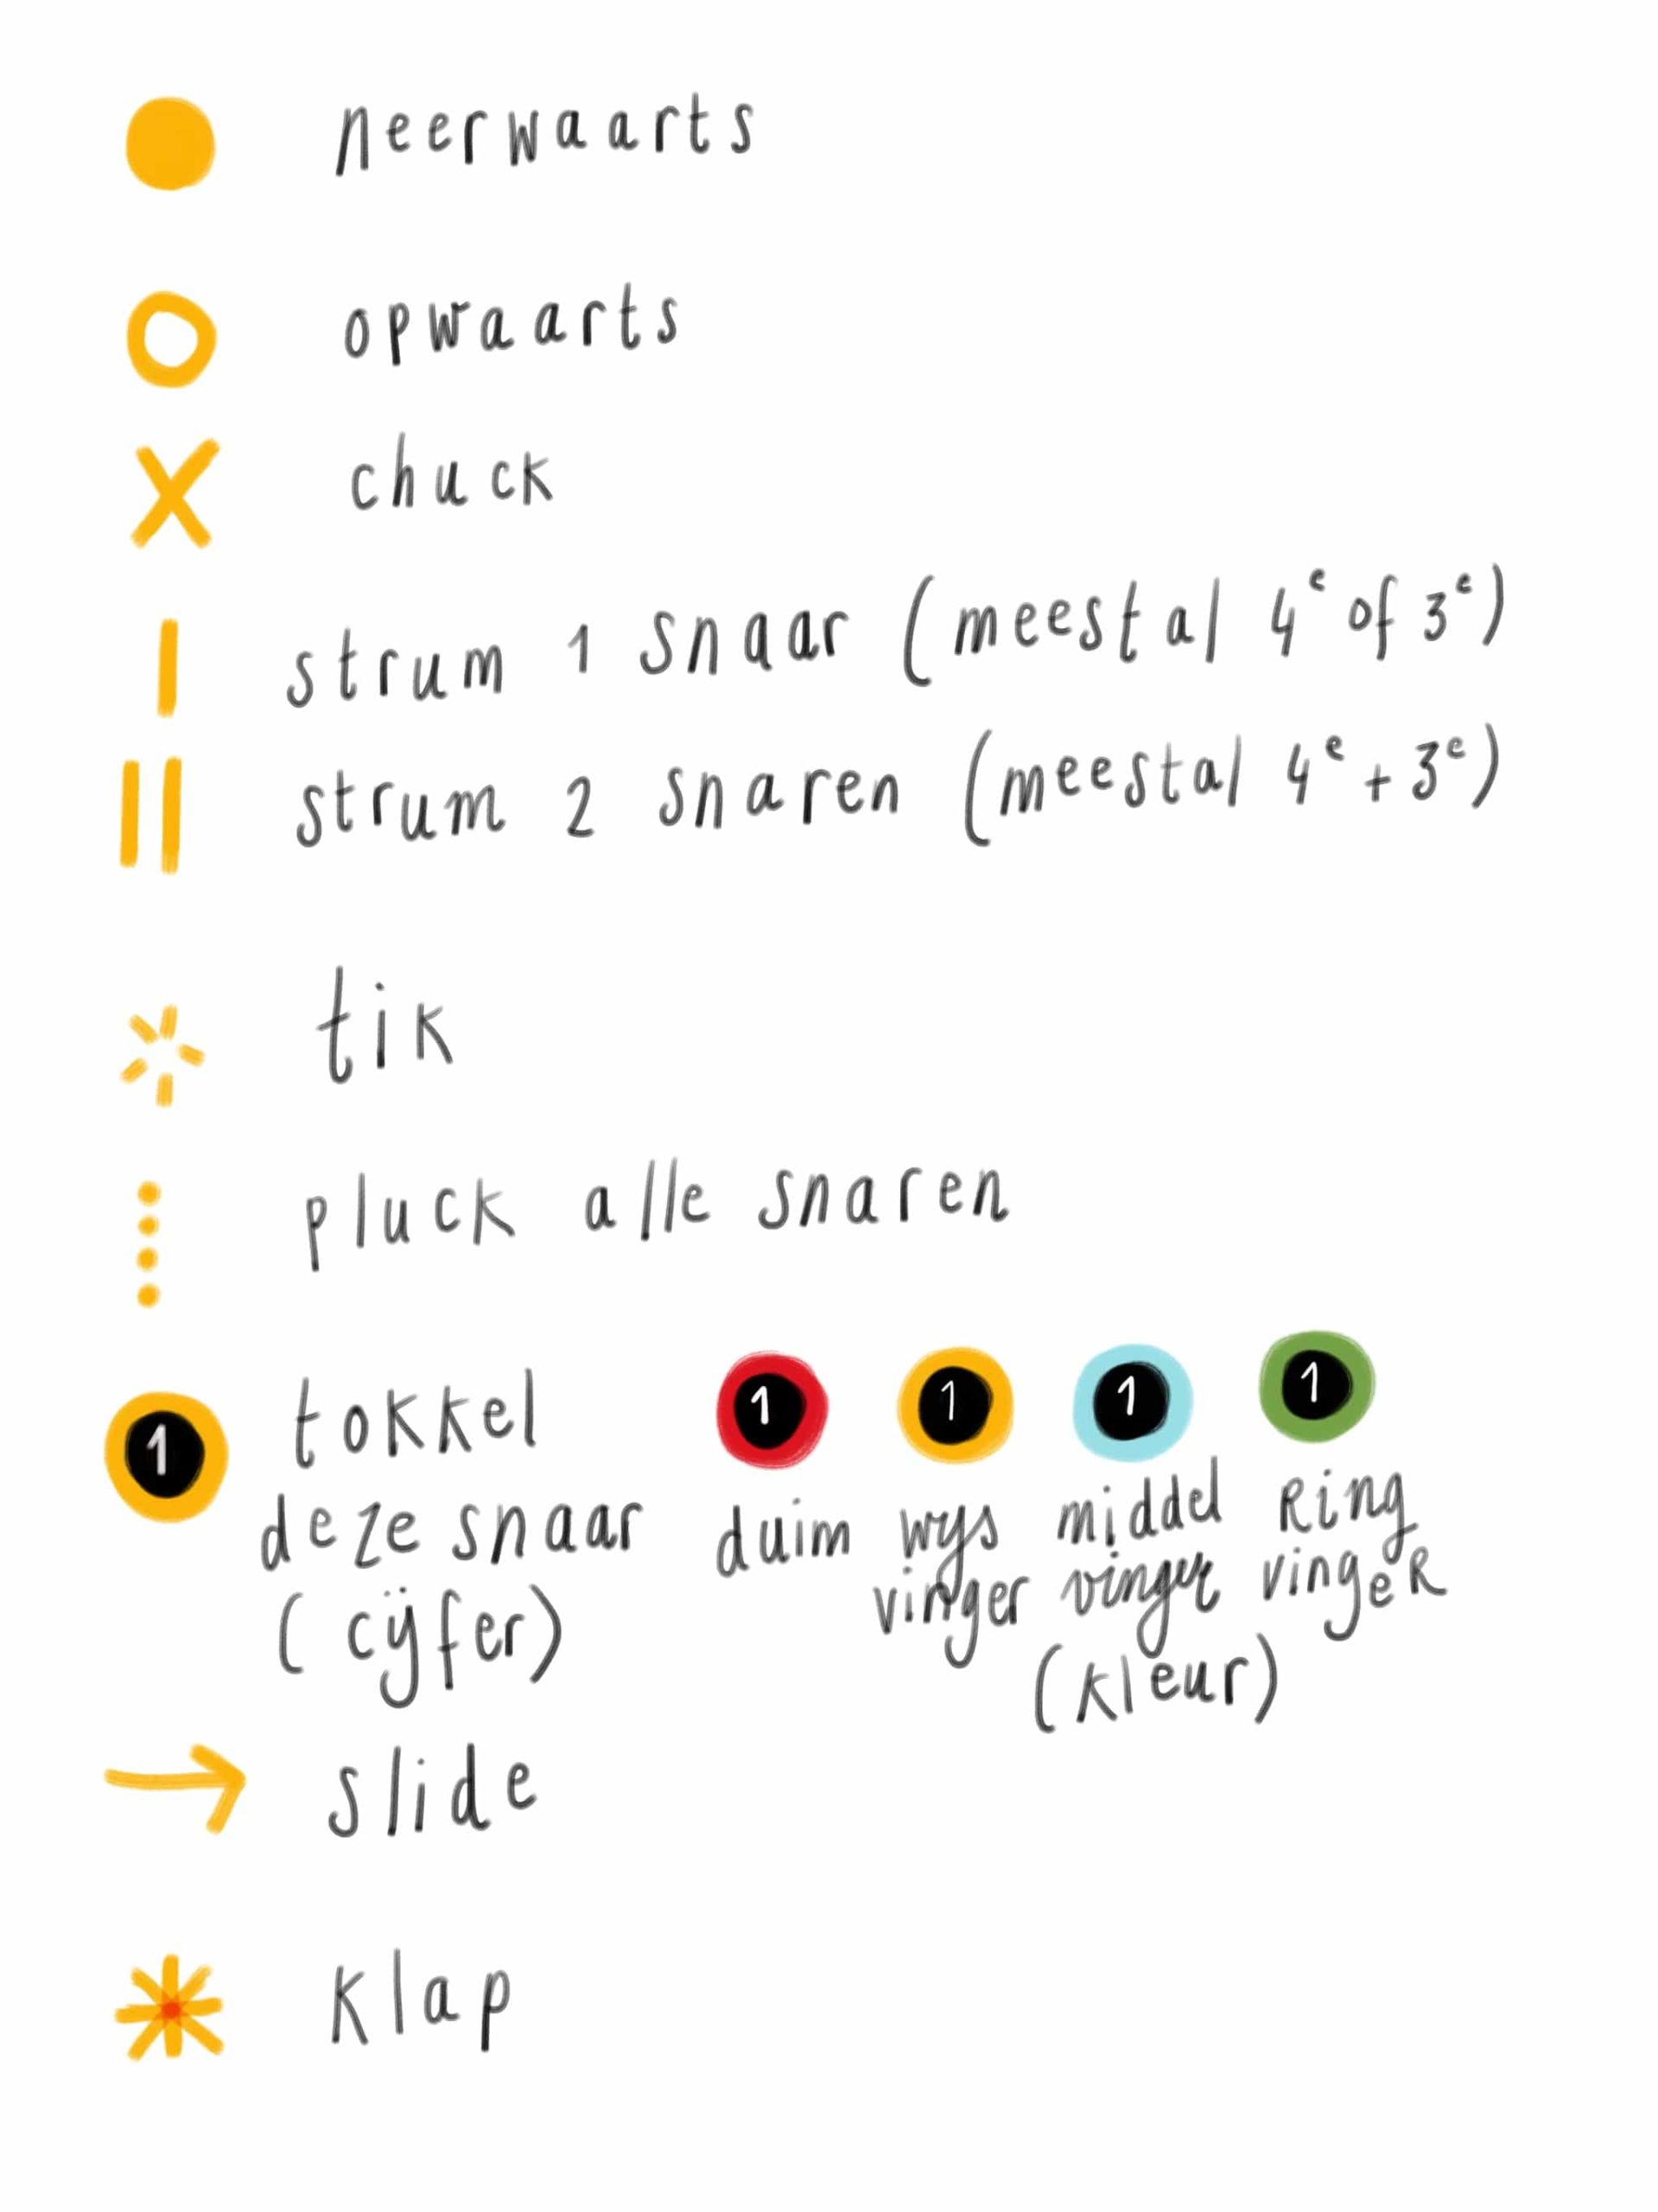 neerwaarts
opwaarts
chuck
strum 1 snaar (meestal 4e of 3e)
strum 2 snaren (meestal 4e + 3e)
tik
pluck alle snaren
1 tokkel
deze snaar
(cijfer)
1 1 1 1
duim wijs middel Ring
vinger vinger vingeR
(kleur)
slide
klap